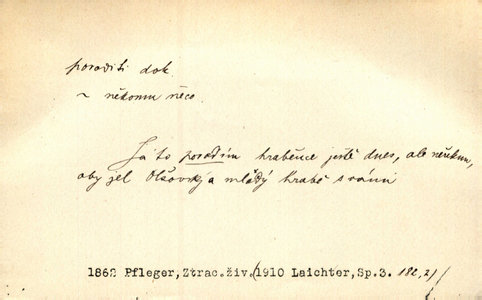 poraditi dok.
~ někomu něco.
Já to poradím hraběnce ještě dnes, ale neřeknu,
aby jel Olšovský a mladý hrabě s námi
1862 Pfleger, Ztrac. živ.(1910 Laichter, Sp.3. 182,2/